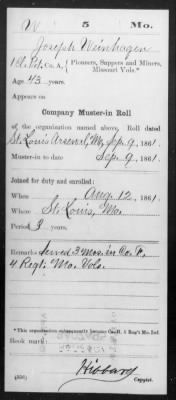 W 5 Mo.
Joseph Weinhagen
Co. A, Pioneers, Sappers and Miners,
Missouri Vols.*
Age 43 years.
Appears on
Company Muster-in Roll
of the organization named above. Roll dated
St. Louis Arsenal, Mo, Sep. 9, 1861.
Muster-in to date Sep. 9, 1861.
Joined for duty and enrolled:
When Aug. 12, 1861.
Where St. Louis, Mo.
Period 3 years.
Remarks Served 3 mos. in Co. F,
4 Regt. Mo. Vols.
*This organization subsequently became Co. H, 5 Reg't Mo. Inf.
Book mark:
(356) Hibbard
Copyist.